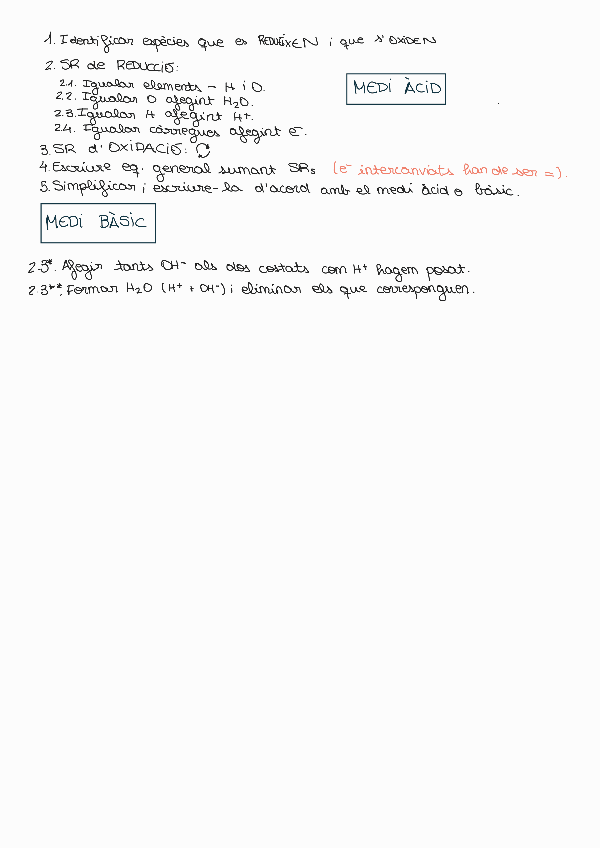 1. Identificar espècies que es REDUEIXEN i que s'OXIDEN
2. SR de REDUCCIÓ:
2.1. Igualar elements - H i O.
MEDI ÀCID
2.2. Igualar O afegint H₂O.
2.3. Igualar H afegint H⁺.
2.4. Igualar càrregues afegint e⁻.
3. SR d'OXIDACIÓ:
4. Escriure eq. general sumant SRs (e⁻ intercanviats han de ser =).
5. Simplificar i escriure-la d'acord amb el medi àcid o bàsic.
MEDI BÀSIC
2.3*. Afegir tants OH⁻ als dos costats com H⁺ hagem posat.
2.3**. Formar H₂O (H⁺ + OH⁻) i eliminar els que corresponguen.